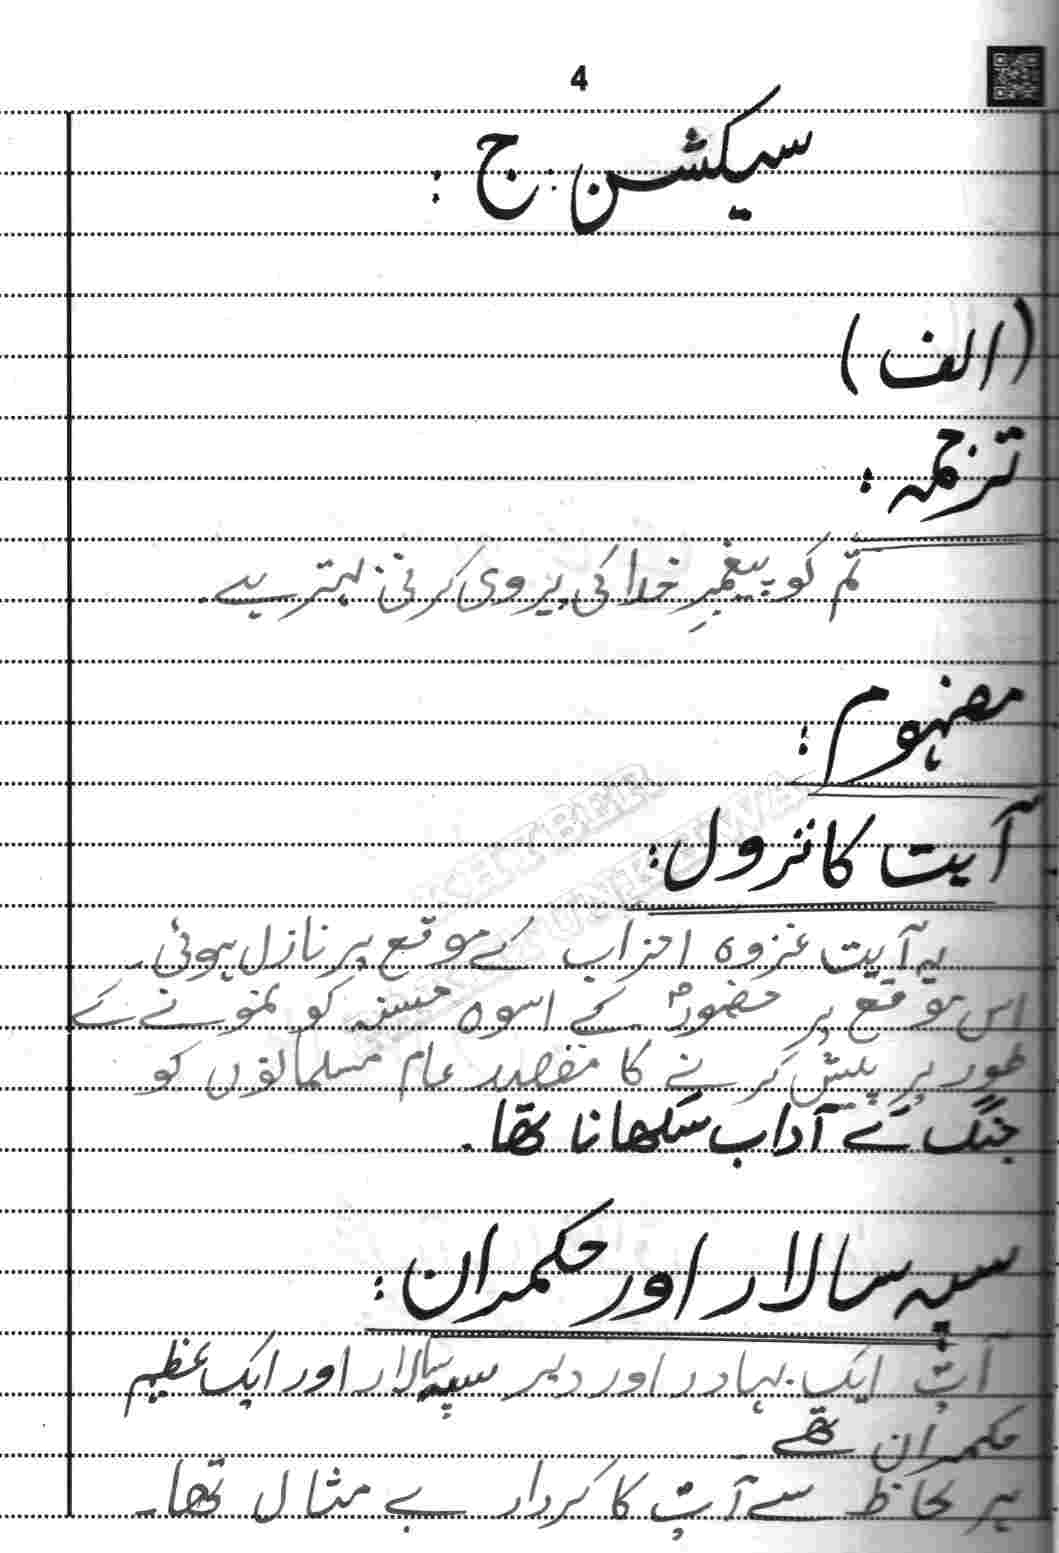 4
سیکشن : ج :
(الف)
ترجمہ :
تم کو پیغمبرِ خدا کی پیروی کرنی بہتر ہے۔
مفہوم :
آیت کا نزول :
یہ آیت غزوہ احزاب کے موقع پر نازل ہوئی۔
اس موقع پر حضورؐ کے اسوہ حسنہ کو نمونے کے
طور پر پیش کرنے کا مقصد عام مسلمانوں کو
جنگ کے آداب سکھانا تھا۔
سپہ سالار اور حکمران :
آپ ایک بہادر اور دلیر سپہ سالار اور ایک عظیم
حکمران تھے
ہر لحاظ سے آپ کا کردار بے مثال تھا۔
KHYBER
PAKHTUNKHWA